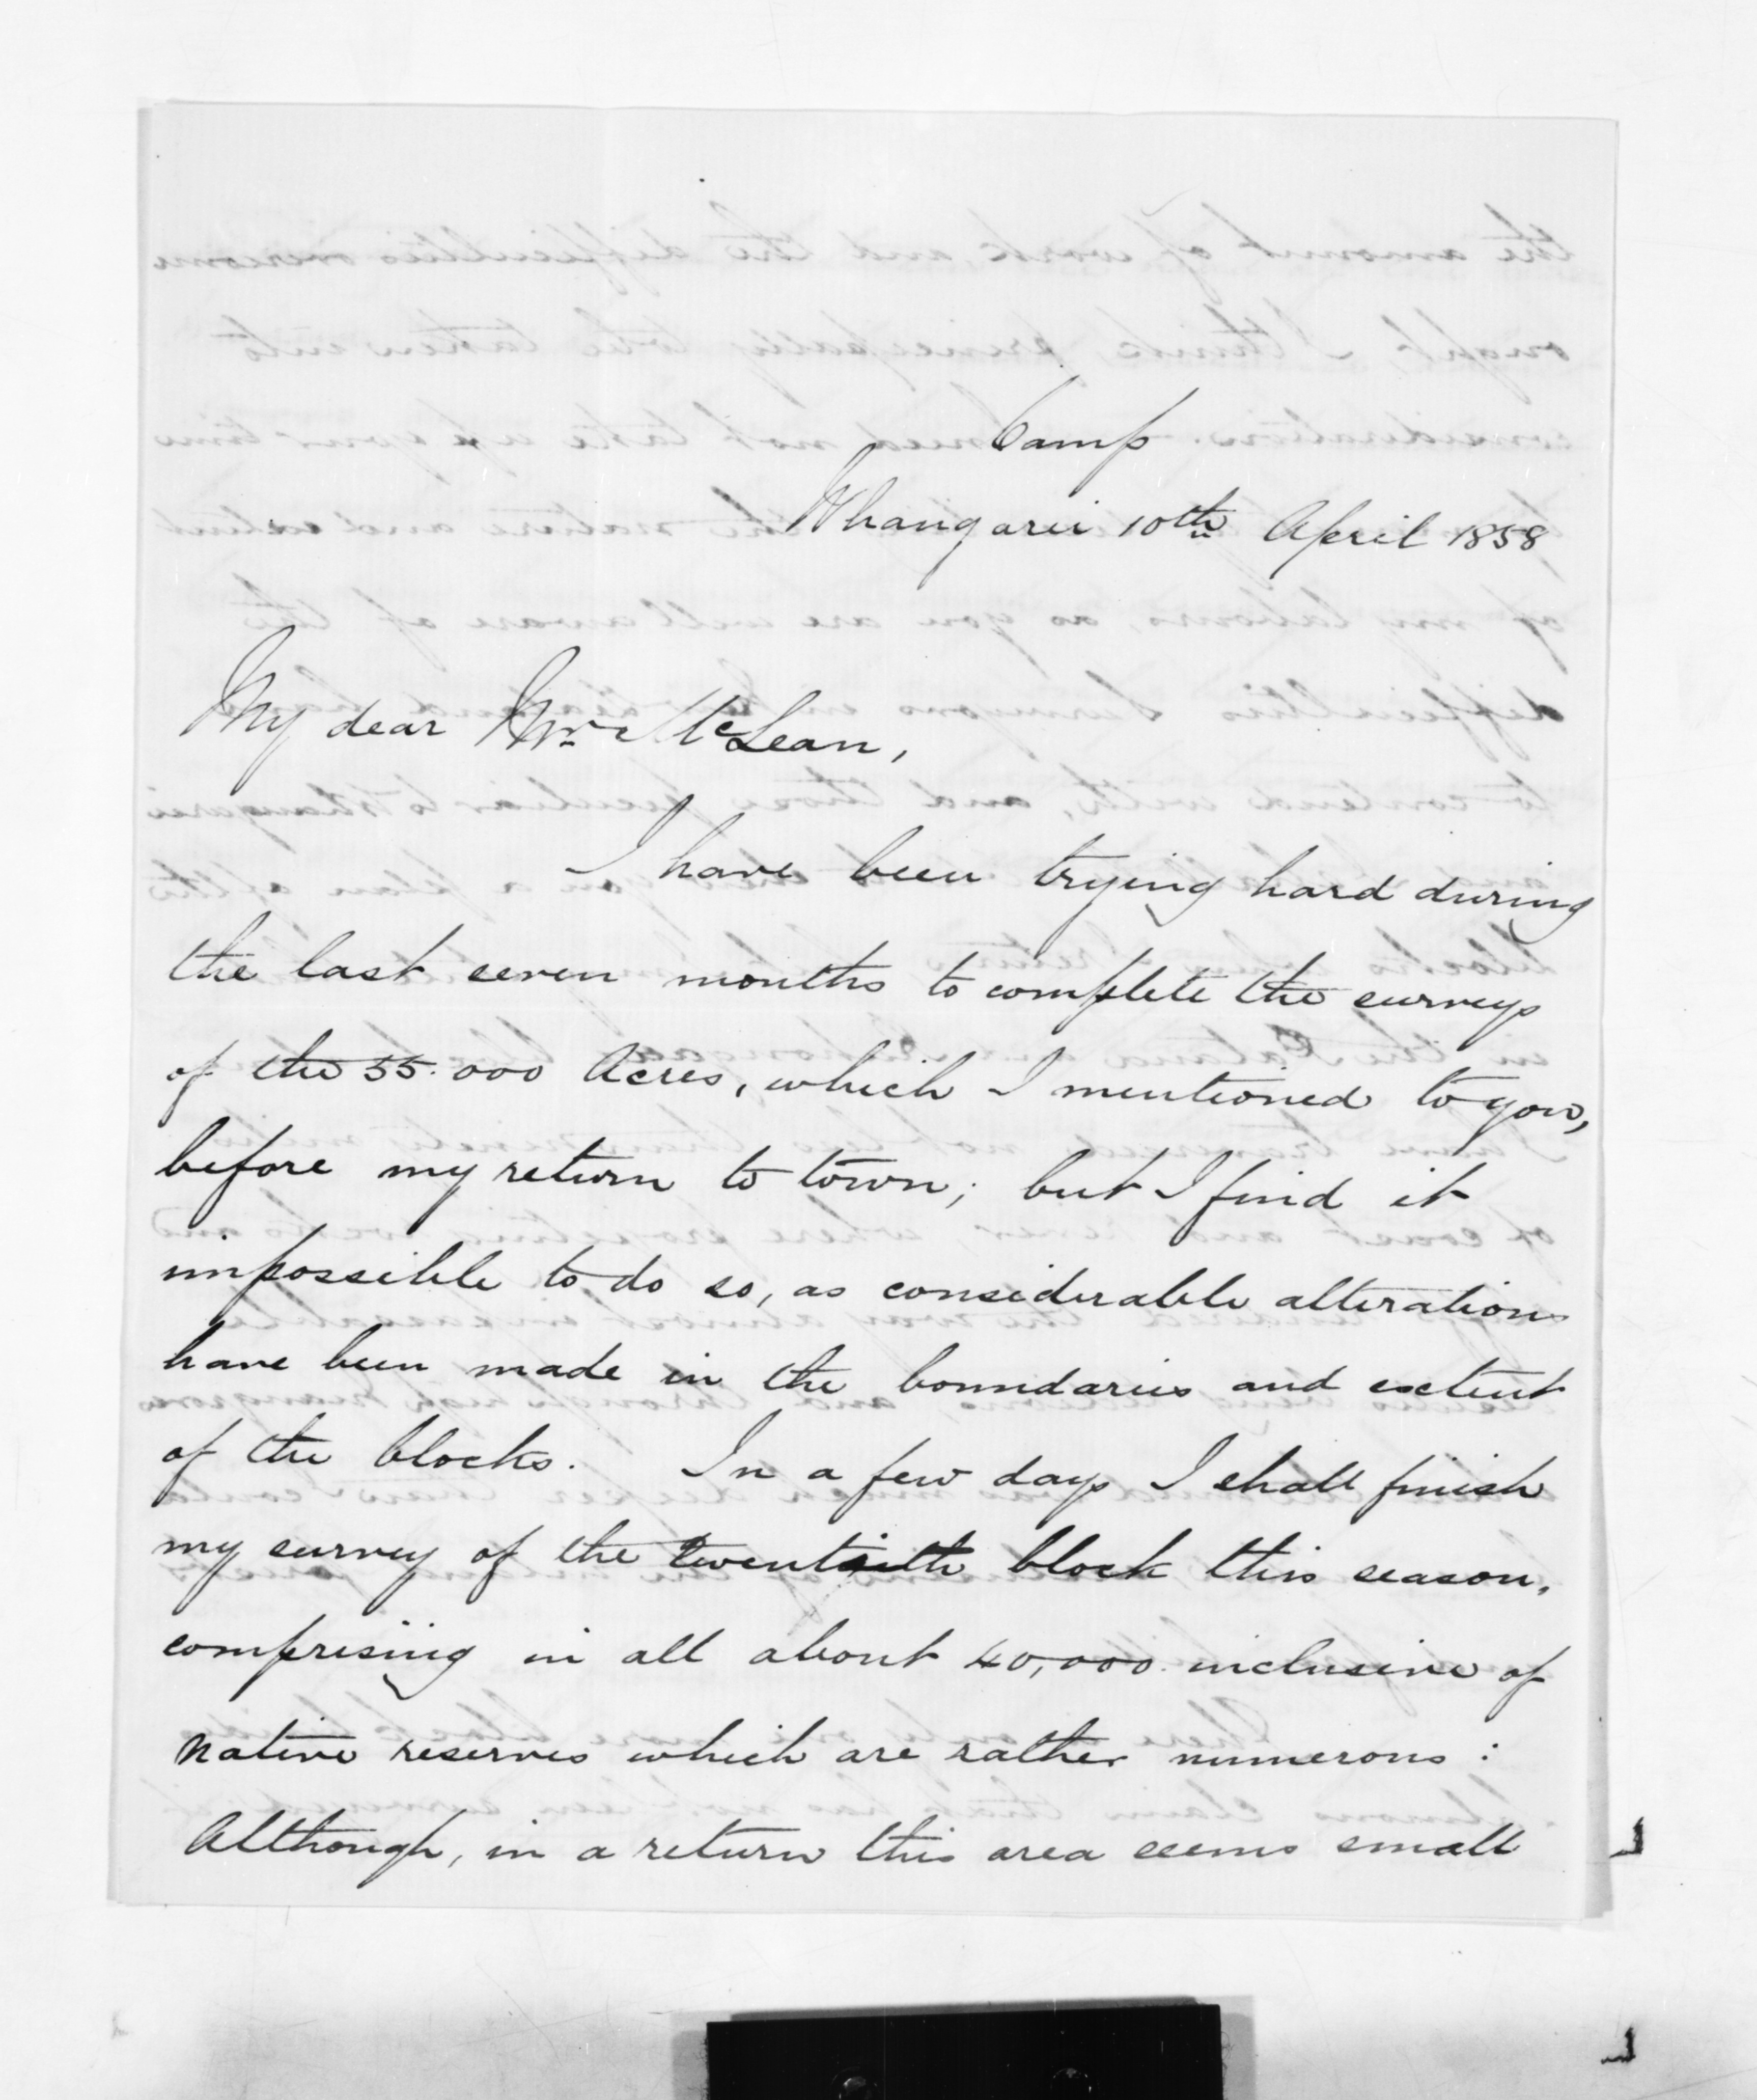 Camp
Whangarei 10th April 1858
My dear Mr McLean,
I have been trying hard during
the last seven months to complete the surveys
of the 55.000 Acres, which I mentioned to you,
before my return to town; but I find it
impossible to do so, as considerable alterations
have been made in the boundaries and extent
of the blocks. In a few days I shall finish
my survey of the twentieth block this season,
comprising in all about 40,000 inclusive of
native reserves which are rather numerous:
Although, in a return this area seems small